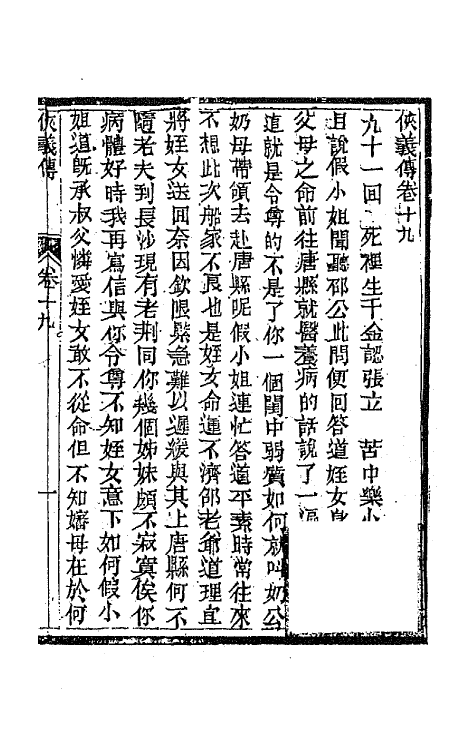 俠義傳卷十九
九十一回 死裡生千金認張立 苦中樂小
且說假小姐聞聽邵公此問便回答道姪女身
父母之命前往唐縣就醫養病的話說了一遍
道就是令尊的不是了你一個閨中弱質如何就叫奶公
奶母帶領去赴唐縣呢假小姐連忙答道平素時常往來
不想此次船家不良也是姪女命運不濟邵老爺道理宜
將姪女送回奈因欽限緊急難以遲緩與其上唐縣何不
隨老夫到長沙現有老荆同你幾個姊妹頗不寂寞俟你
病體好時我再寫信與你令尊不知姪女意下如何假小
姐道旣承叔父憐愛姪女敢不從命但不知嬸母在於何
俠義傳 卷十九 一